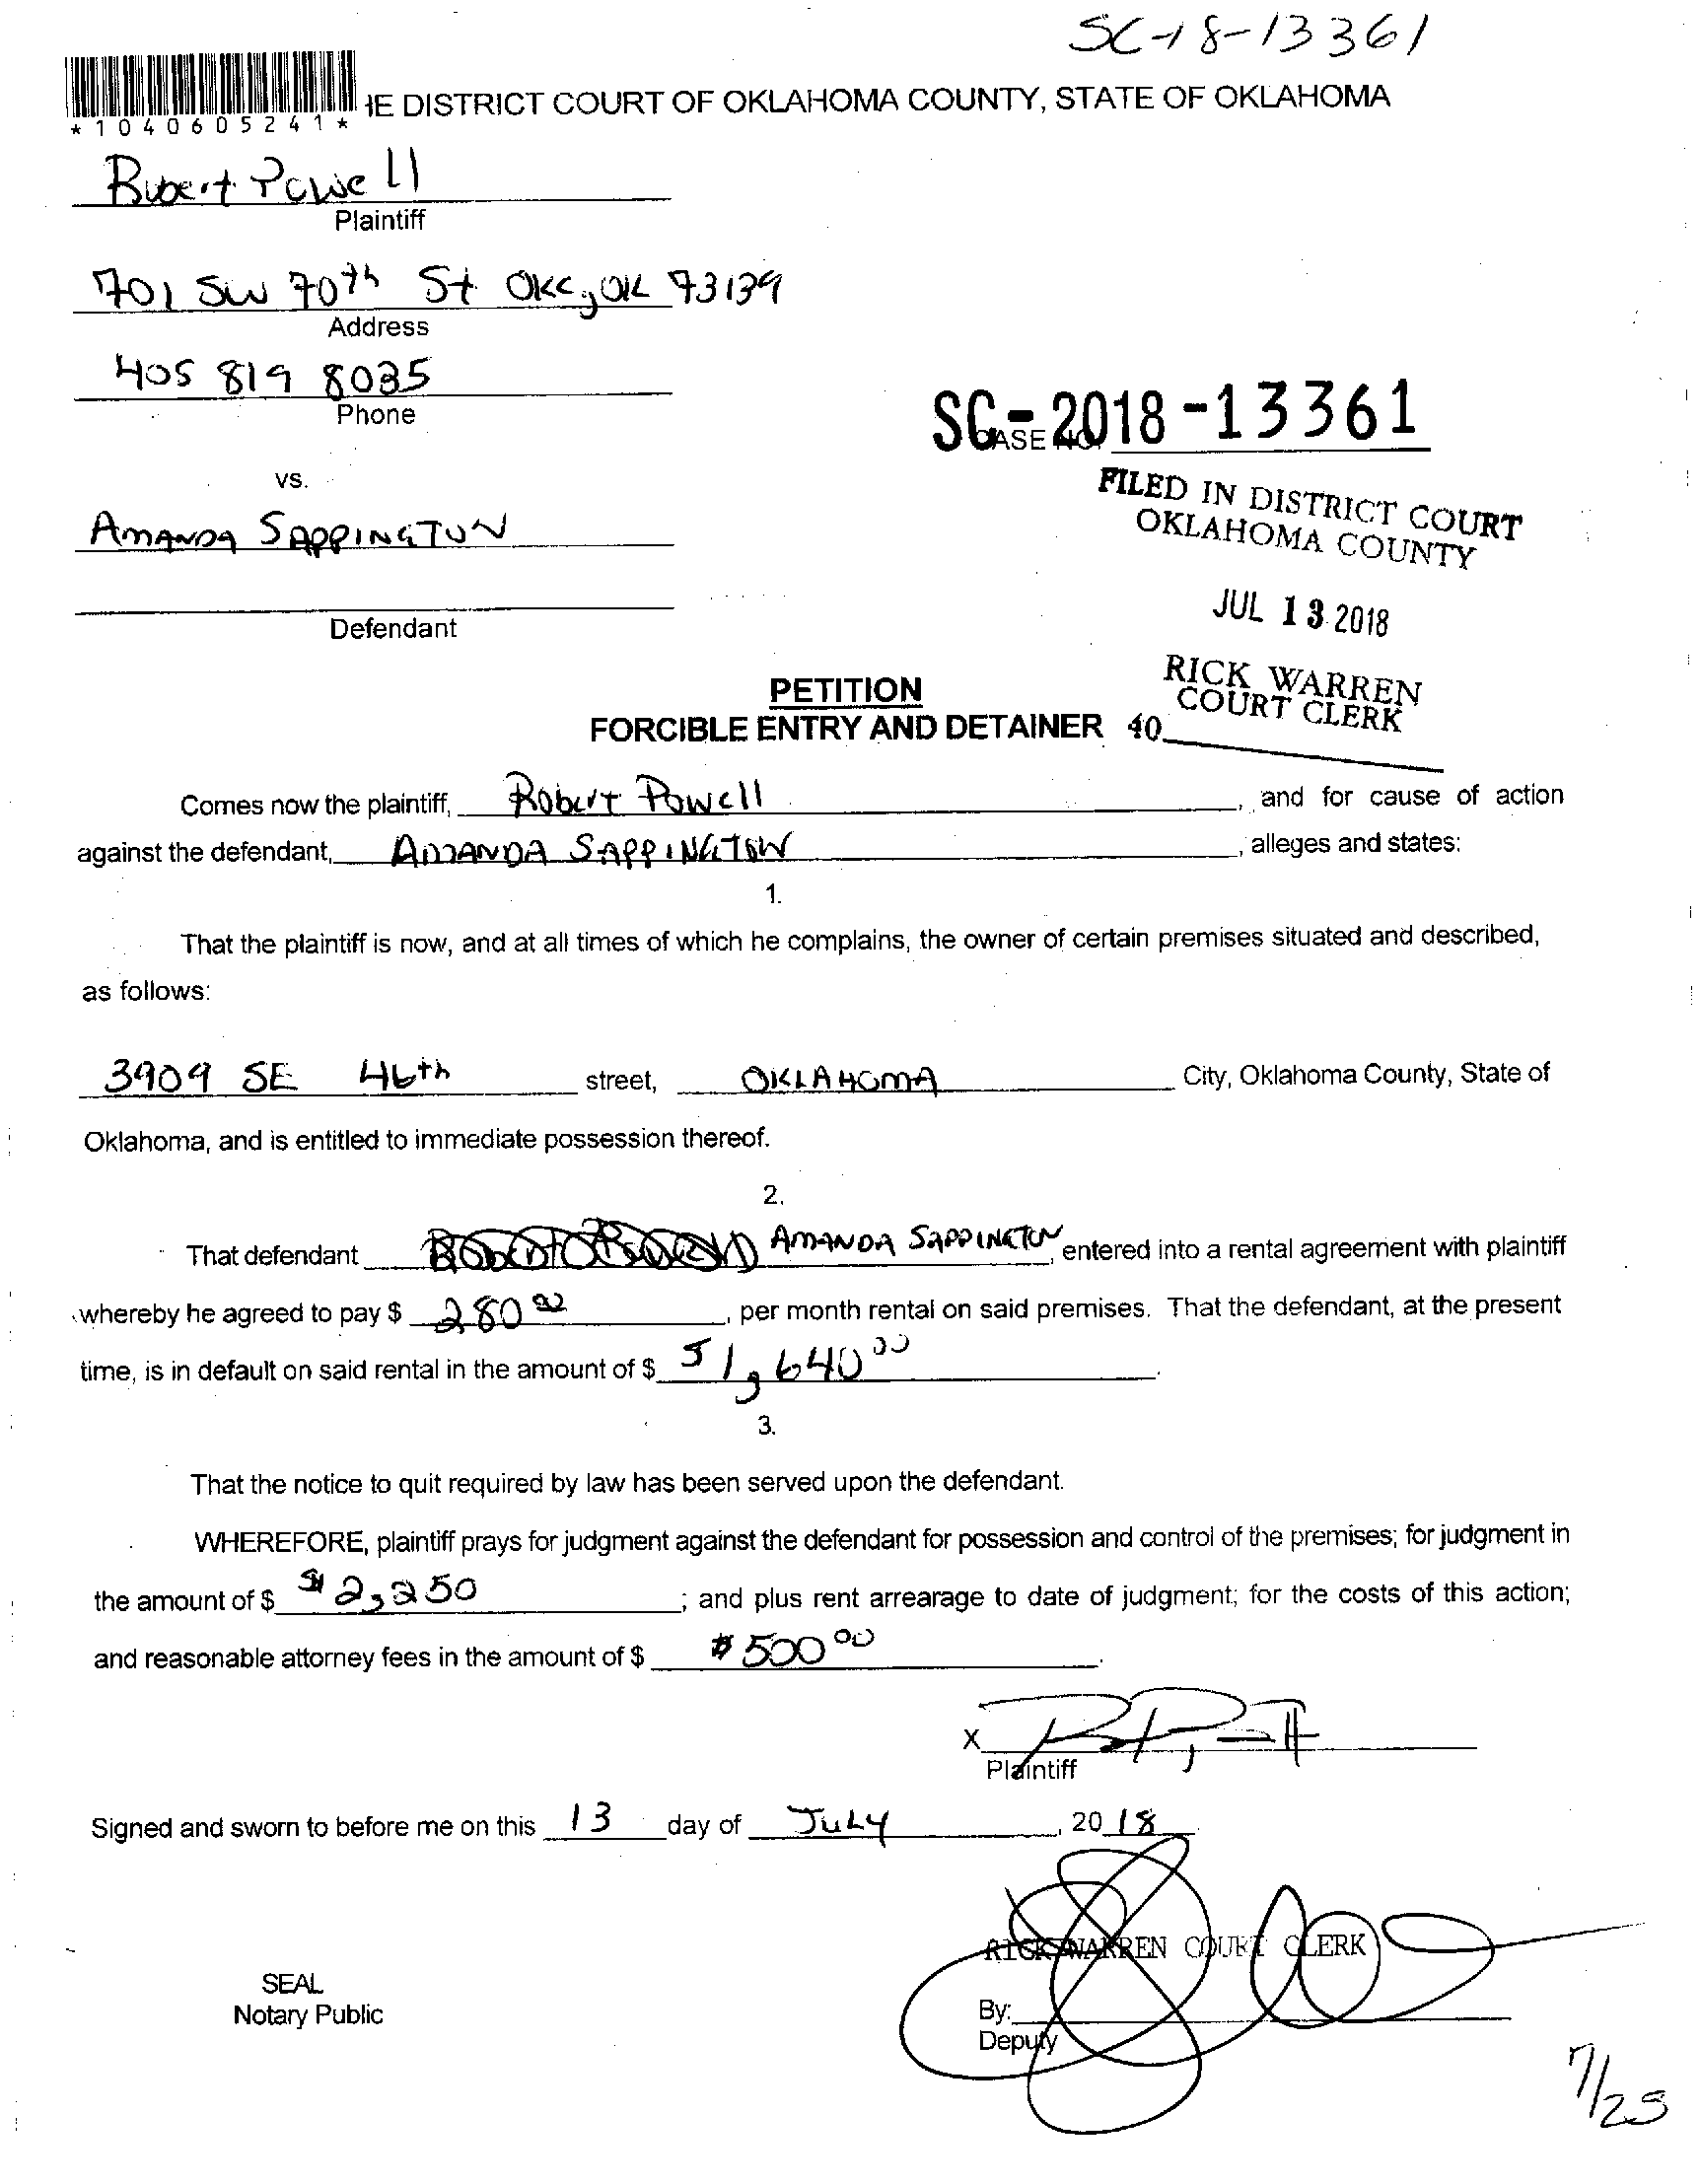 SC-18-13361
*1040605241*
IE DISTRICT COURT OF OKLAHOMA COUNTY, STATE OF OKLAHOMA
Robert Powell
Plaintiff
701 SW 70th St OKC, OK 73139
Address
405 819 8035
Phone
SC-2018-13361
CASE NO.
vs.
FILED IN DISTRICT COURT
OKLAHOMA COUNTY
AMANDA SAPPINGTON
JUL 13 2018
Defendant
RICK WARREN
COURT CLERK
PETITION
FORCIBLE ENTRY AND DETAINER 40
Comes now the plaintiff, Robert Powell, and for cause of action
against the defendant, AMANDA SAPPINGTON, alleges and states:
1.
That the plaintiff is now, and at all times of which he complains, the owner of certain premises situated and described,
as follows:
3909 SE 46th street, OKLAHOMA City, Oklahoma County, State of
Oklahoma, and is entitled to immediate possession thereof.
2.
That defendant AMANDA SAPPINGTON, entered into a rental agreement with plaintiff
whereby he agreed to pay $ 280 00, per month rental on said premises. That the defendant, at the present
time, is in default on said rental in the amount of $ $1,640 00.
3.
That the notice to quit required by law has been served upon the defendant.
WHEREFORE, plaintiff prays for judgment against the defendant for possession and control of the premises; for judgment in
the amount of $ $2,250; and plus rent arrearage to date of judgment; for the costs of this action;
and reasonable attorney fees in the amount of $ $500 00.
X
Plaintiff
Signed and sworn to before me on this 13 day of JULY, 20 18
RICK WARREN COURT CLERK
SEAL
Notary Public
By:
Deputy
7/25